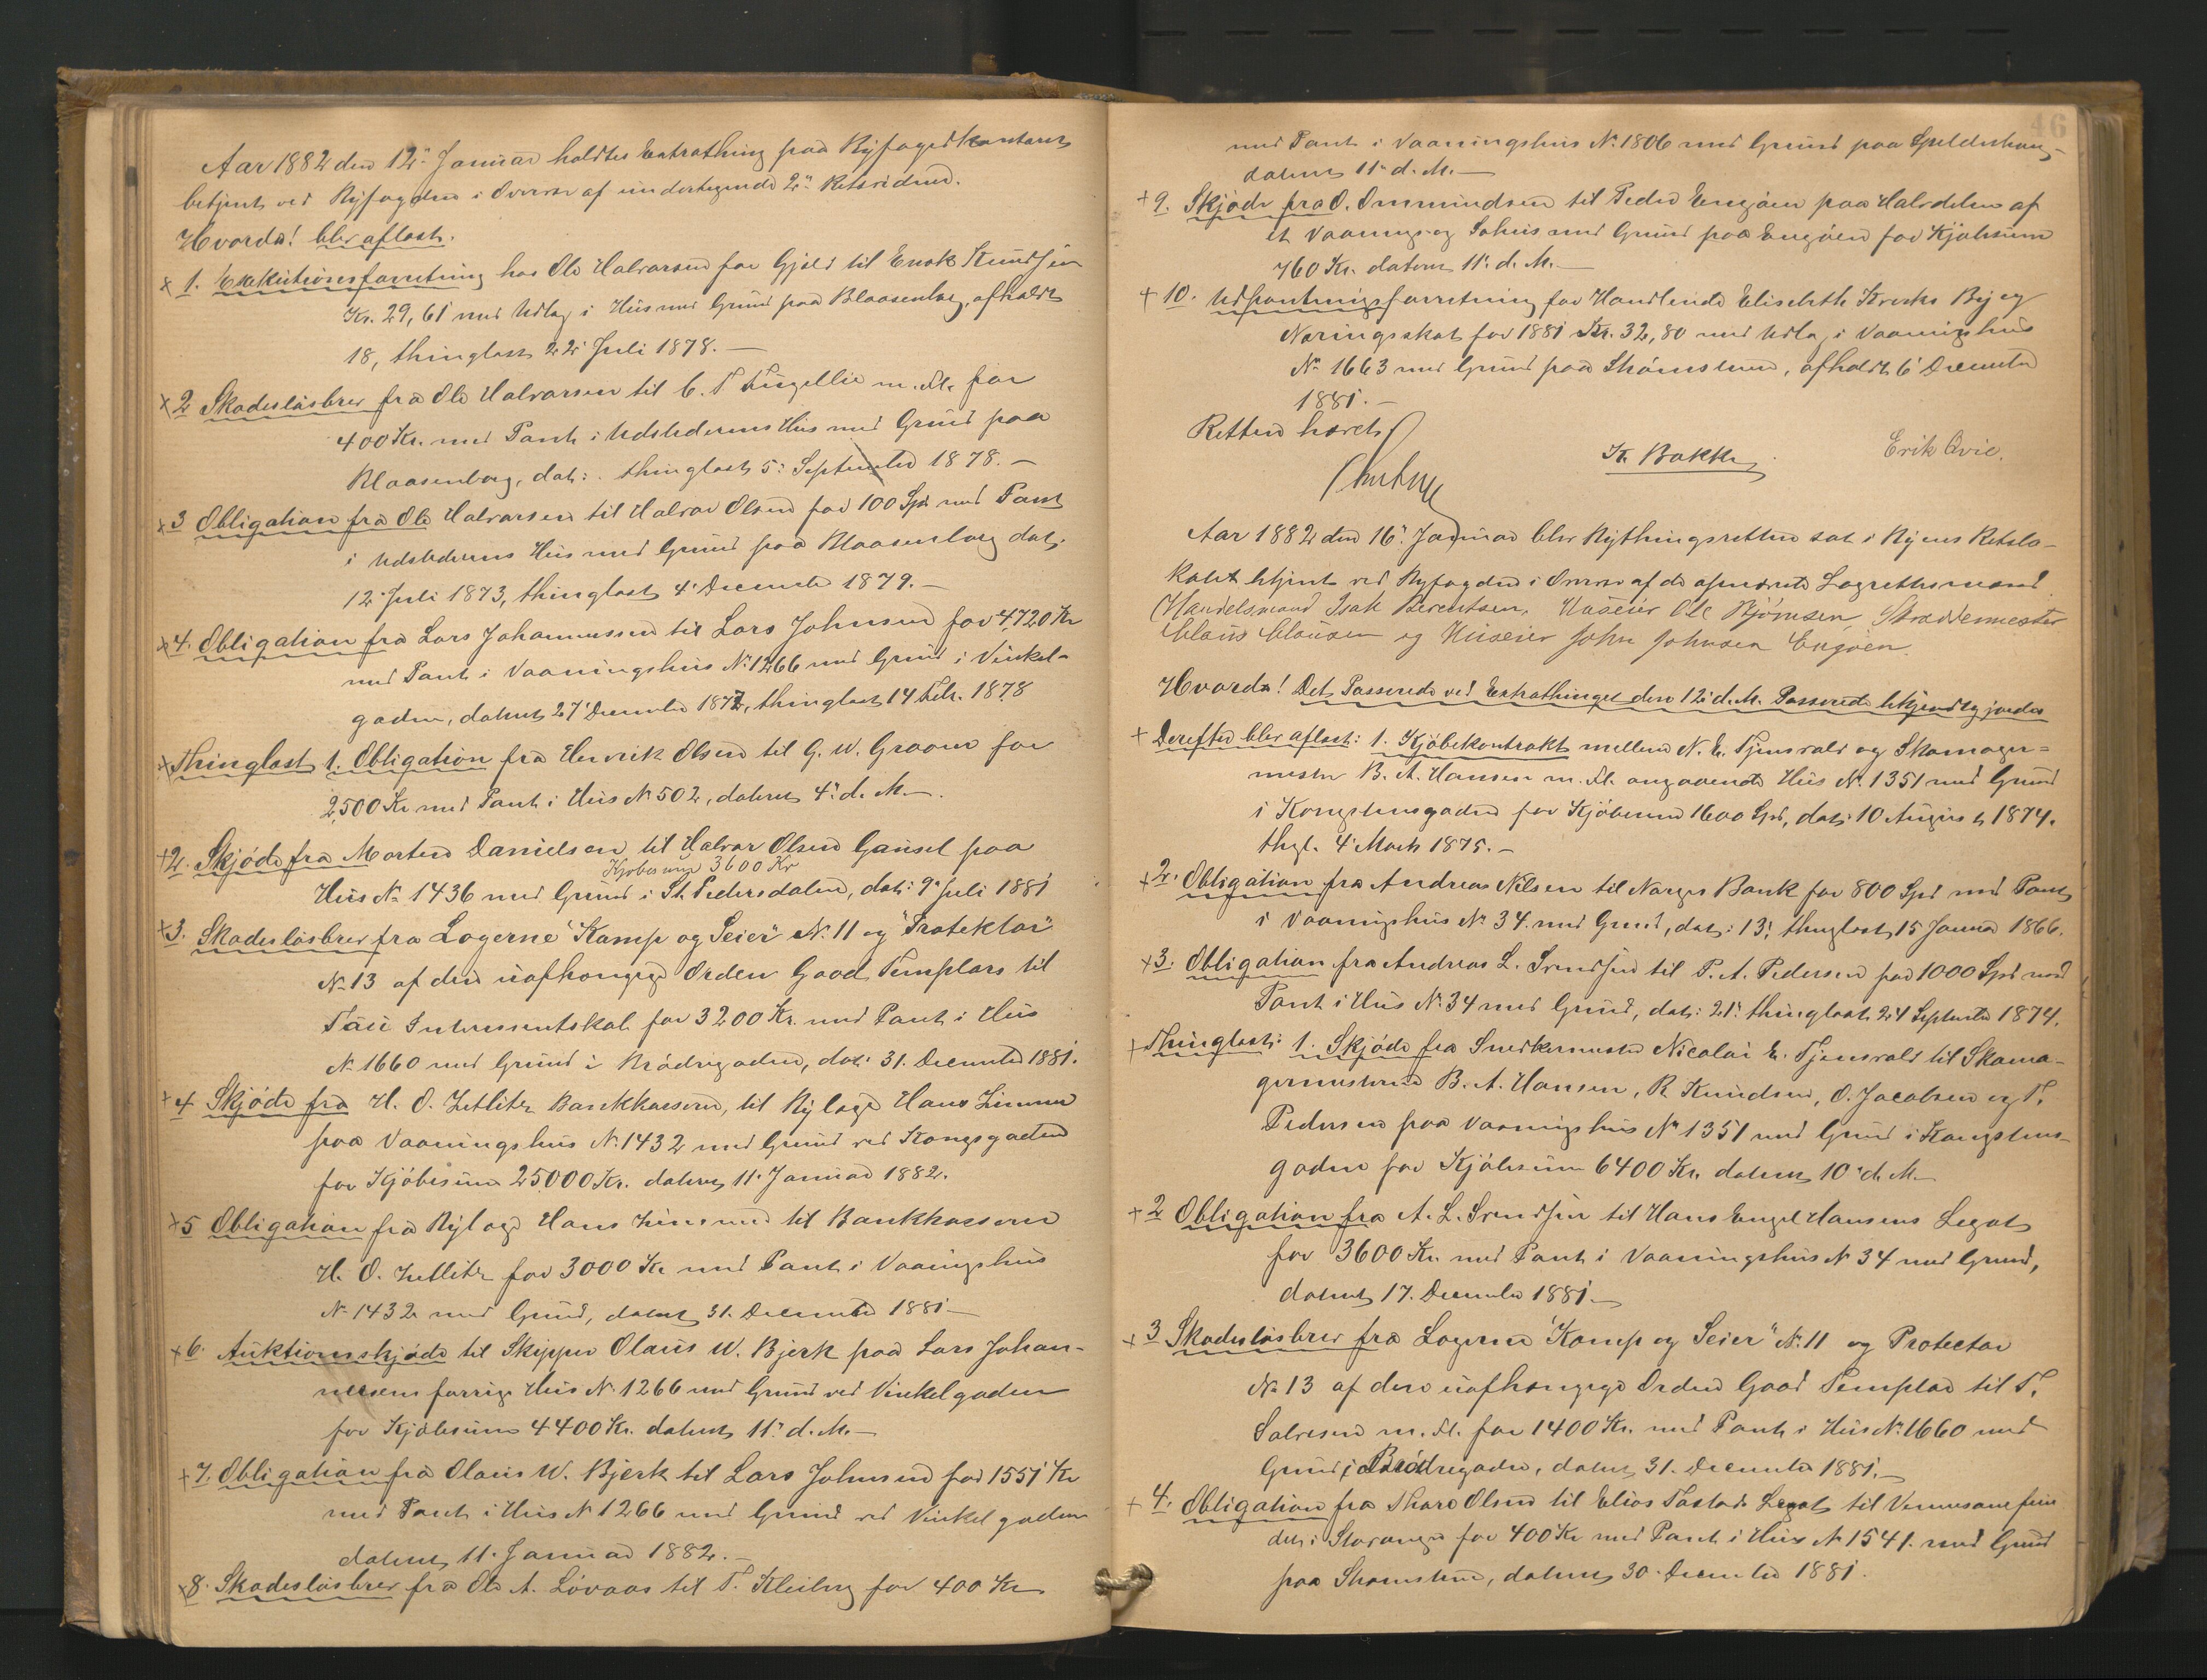 Aar 1882 den 12te Januar holdtes Extrathing paa Byfogedkontoret
betjent ved Byfogden i Overvær af undertegnede 2de Retsvidner.
Hvorda! blev aflæst.
+ 1. Exekutionsforretning hos Ole Halvorsen for Gjæld til Enok Knudsen
Kr. 29,61 med Udlæg i Hus med Grund paa Blaasenborg, afholdt
18, thinglæst 22 Juli 1878.—
+ 2 Skadesløsbrev fra Ole Halvorsen til C. T. m. Fl. for
400 Kr. med Pant i Udstederens Hus med Grund paa
Blaasenborg, dat: thinglæst 5: September 1878.—
+ 3 Obligation fra Ole Halvorsen til Halvor Olsen for 100 Spd med Pant
i Udstederens Hus med Grund paa Blaasenborg dat.
12 Juli 1873, thinglæst 4 December 1879.—
+ 4. Obligation fra Lars Johannessen til Lars Johnsen for 4720 Kr
med Pant i Vaaningshus No 1266 med Grund i Vinkel-
gaden, dateret 27 December 1877, thinglæst 14 Febr. 1878
+ Thinglæst 1. Obligation fra Henrik Olsen til G. W. Groom for
2,500 Kr med Pant i Hus No 502, dateret 4: d. M.—
+ 2. Skjøde fra Morten Danielsen til Halvor Olsen Gausel paa
Kjøbesum 3600 Kr
Hus No 1436 med Grund i St. Pedersdalen, dat: 9 Juli 1881
+ 3. Skadesløsbrev fra Logerne "Kamp og Seier" No. 11 og "Protektor"
No 13 af den uafhængige Orden Good Templars til
Tau Interessentskab for 3200 Kr. med Pant i Hus
No 1660 med Grund i Brødregaden, dat: 31. December 1881.
+ 4 Skjøde fra H. O. Zetlitz Bankkasserer, til Bylæge Hans
paa Vaaningshus No. 1432 med Grund ved Kongsgaden
for Kjøbesum 25000 Kr. dateret 11. Januar 1882.
+ 5 Obligation fra Bylæge Hans til Bankkasserer
H. O. Zetlitz for 3000 Kr med Pant i Vaaningshus
No 1432 med Grund, dateret 31. December 1881—
+ 6. Auktionsskjøde til Skipper Olaus W. Bjerk paa Lars Johan-
nessens forrige Hus No. 1266 med Grund ved Vinkelgaden
for Kjøbesum 4400 Kr. dateret 11: d. M.—
+ 7. Obligation fra Olaus W. Bjerk til Lars Johnsen for 1551 Kr
med Pant i Hus No 1266 med Grund ved Vinkelgaden
dateret 11. Januar 1882.—
+ 8. Skadesløsbrev fra Ole A. Løvaas til T. Kleiberg for 400 Kr
46
med Pant i Vaaningshus No. 1806 med Grund paa
dateret 11te d. M.—
+ 9. Skjøde fra O. Ommundsen til Peder Engøen paa Halvdelen af
et Vaanings og Søhus med Grund paa Engøen for Kjøbesum
760 Kr. dateret 11: d. M.—
+ 10. Udpantningsforretning for Handlende Elisabeth By og
Næringsskat for 1881 Kr. 32,80 med Udlæg i Vaaningshus
No 1663 med Grund paa Strømsteen, afholdt 6 December
1881.—
Retten hævet
K. Bakke Erik Qvie.
Aar 1882 den 16: Januar blev Bythingsretten sat i Byens Retslo-
kale betjent ved Byfogden i Overvær af de opnævnte Lagrettesmænd
Handelsmand Isak Berentsen, Huseier Ole Bjørnsen, Skræddermester
Claus Clausen og Huseier John Johnsen Engøen.
Hvorda! Det Passerede ved Extrathinget den 12 d. M. Passerede bekjendtgjordes
+ Derefter blev aflæst: 1. Kjøbekontrakt mellem N. E. Tjensvold og Skomager-
mester B. A. Hansen m. Fl. angaaende Hus No. 1351 med Grund
i Kongsteensgaden for Kjøbesum 1600 Spd, dat: 10 August 1874.
thgl. 4 Marts 1875.—
+ 2. Obligation fra Andreas Nilsen til Norges Bank for 800 Spd med Pant
i Vaaningshus No. 34. med Grund, dat: 13, thinglæst 15 Januar 1866.
+ 3. Obligation fra Andreas L. Svendsen til P. A. Pedersen for 1000 Spd med
Pant i Hus No. 34 med Grund, dat: 21: thinglæst 24 September 1874.
+ Thinglæst: 1. Skjøde fra Snedkermester Nicolai E. Tjensvold til Skoma-
germesterne B. A. Hansen, R Knudsen, O. Jacobsen og T.
Pedersen paa Vaaningshus No 1351 med Grund i Kongsteens-
gaden for Kjøbesum 6400 Kr. dateret 10: d. M.—
+ 2 Obligation fra A. L. Svendsen til Hans Engel Hansens Legat
for 3600 Kr. med Pant i Vaaningshus No 34 med Grund,
dateret 17. December 1881.—
+ 3 Skadesløsbrev fra Logerne "Kamp og Seier" No. 11 og Protector
No 13 af den uafhængige Orden Good Templar til T.
Salvesen m. Fl. for 1400 Kr. med Pant i Hus No. 1660 med
Grund i Brødregaden, dateret 31. December 1881.—
+ 4. Obligation fra Thore Olsen til Elias Tastads Legat til
det i Stavanger for 400 Kr med Pant i Hus No 1541. med Grund
paa Strømsteen, dateret 30. December 1881.